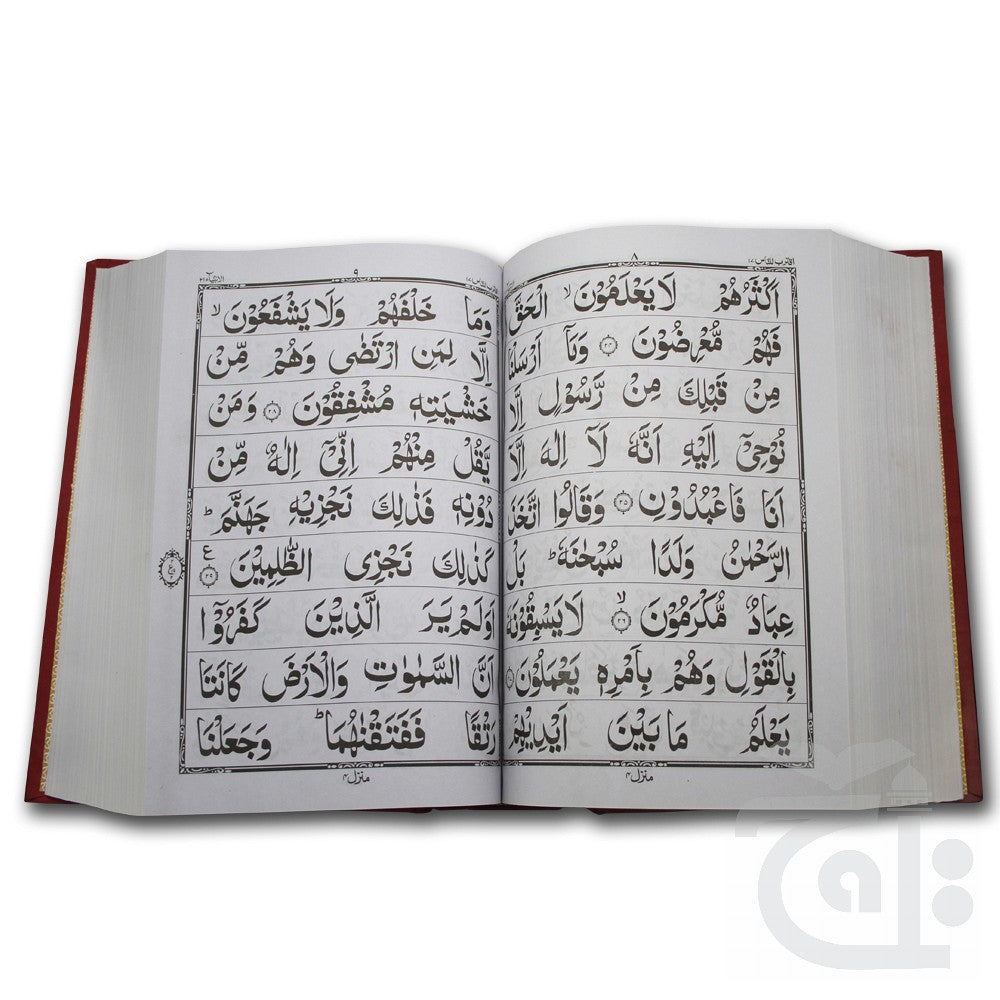 اقترب للناس ١٧
٨
اَكْثَرُهُمْ لَا يَعْلَمُوْنَ ۙ الْحَقَّ
فَهُمْ مُّعْرِضُوْنَ ﴿۲۴﴾ وَمَاۤ اَرْسَلْنَا
مِنْ قَبْلِكَ مِنْ رَّسُوْلٍ اِلَّا
نُوْحِيْۤ اِلَيْهِ اَنَّهٗ لَاۤ اِلٰهَ اِلَّاۤ
اَنَا فَاعْبُدُوْنِ ﴿۲۵﴾ وَقَالُوا اتَّخَذَ
الرَّحْمٰنُ وَلَدًا سُبْحٰنَهٗ ؕ بَلْ
عِبَادٌ مُّكْرَمُوْنَ ﴿۲۶﴾ ۙ لَا يَسْبِقُوْنَهٗ
بِالْقَوْلِ وَهُمْ بِاَمْرِهٖ يَعْمَلُوْنَ
يَعْلَمُ مَا بَيْنَ اَيْدِيْهِمْ
منزل ۴
٩
الانبیآء ٢١
وَمَا خَلْفَهُمْ وَلَا يَشْفَعُوْنَ ۙ
اِلَّا لِمَنِ ارْتَضٰى وَهُمْ مِّنْ
خَشْيَتِهٖ مُشْفِقُوْنَ ﴿۲۸﴾ وَمَنْ
يَّقُلْ مِنْهُمْ اِنِّيْۤ اِلٰهٌ مِّنْ
دُوْنِهٖ فَذٰلِكَ نَجْزِيْهِ جَهَنَّمَ ؕ
كَذٰلِكَ نَجْزِي الظّٰلِمِيْنَ ﴿۲۹﴾ ع
اَوَلَمْ يَرَ الَّذِيْنَ كَفَرُوْۤا
اَنَّ السَّمٰوٰتِ وَالْاَرْضَ كَانَتَا
رَتْقًا فَفَتَقْنٰهُمَا ؕ وَجَعَلْنَا
منزل ۴